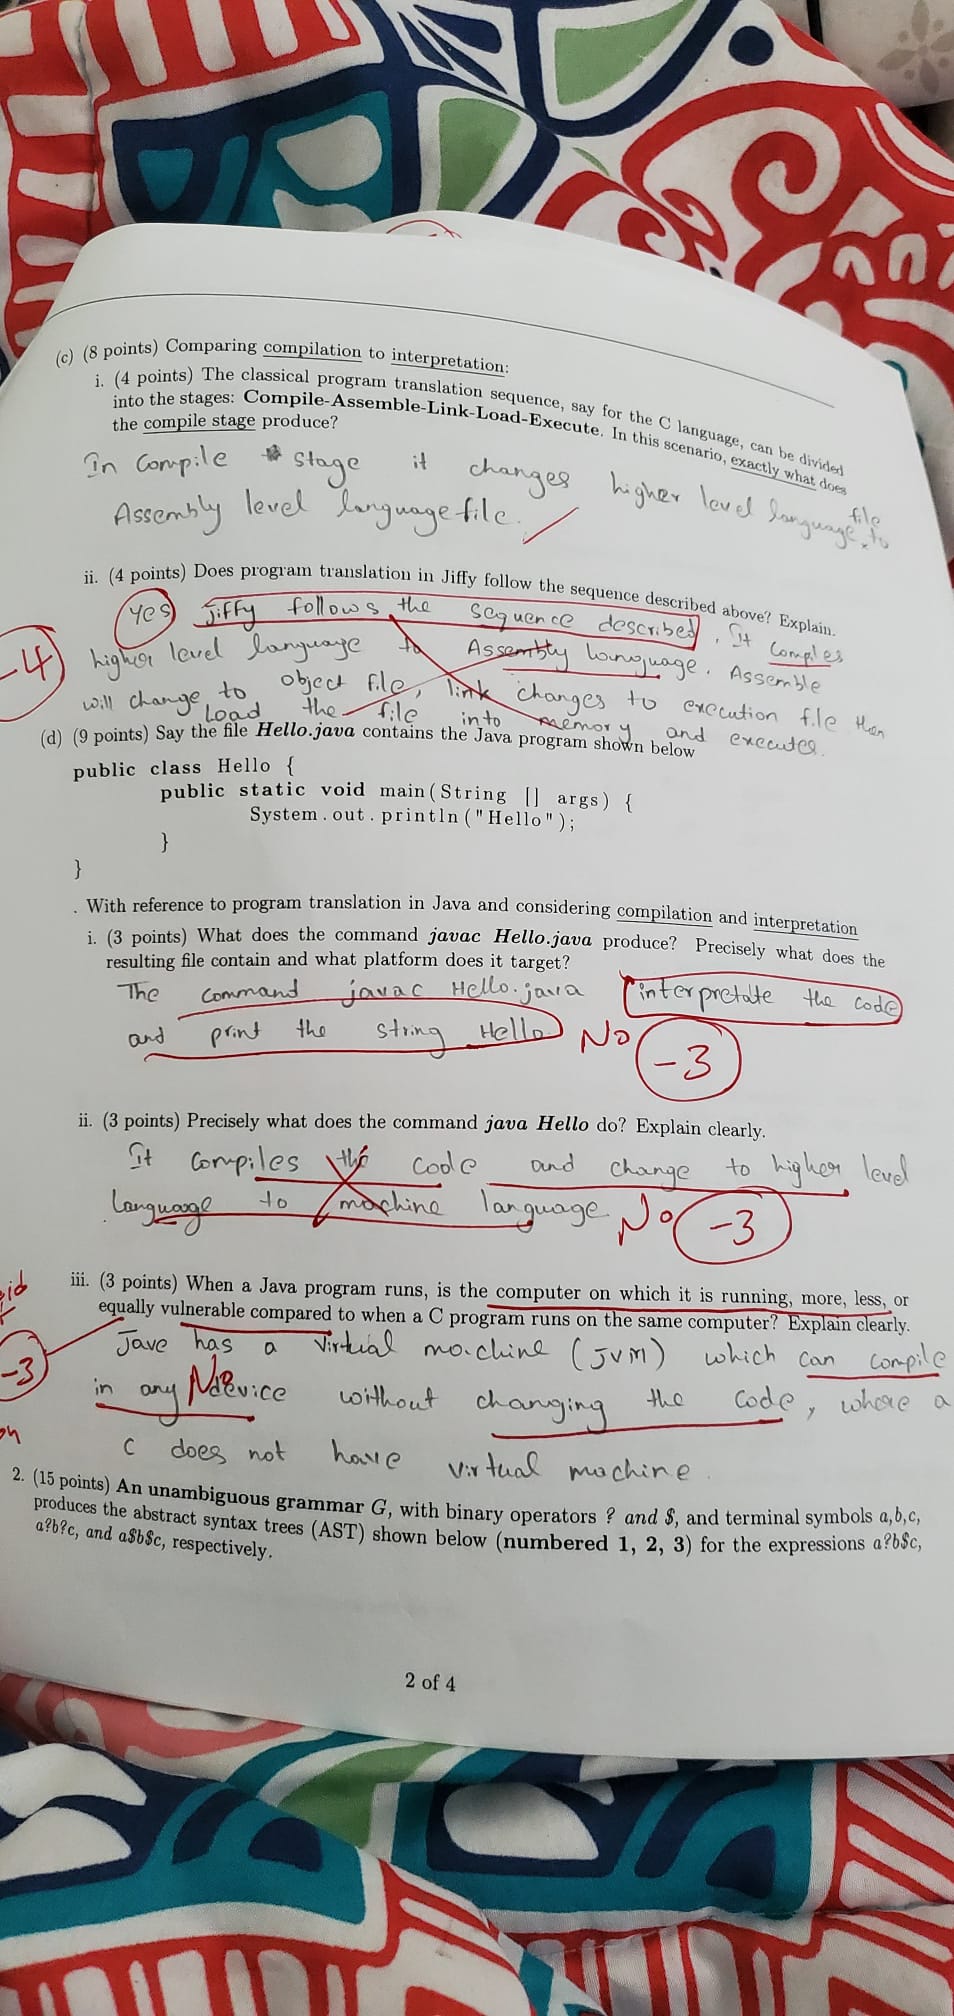 (c) (8 points) Comparing compilation to interpretation:
i. (4 points) The classical program translation sequence, say for the C language, can be divided
into the stages: Compile-Assemble-Link-Load-Execute. In this scenario, exactly what does
the compile stage produce?
In Compile stage it changes higher level language file to
Assembly level language file.
ii. (4 points) Does program translation in Jiffy follow the sequence described above? Explain.
Yes Jiffy follows the sequence described, It Comples
-4
higher level language to Assembly language. Assemble
will change to object file, link changes to execution file then
Load the file into memory and executes.
(d) (9 points) Say the file Hello.java contains the Java program shown below
public class Hello {
public static void main(String [] args) {
System.out.println("Hello");
}
}
. With reference to program translation in Java and considering compilation and interpretation
i. (3 points) What does the command javac Hello.java produce? Precisely what does the
resulting file contain and what platform does it target?
The command javac Hello.java interpretate the code
and print the string Hello No
-3
ii. (3 points) Precisely what does the command java Hello do? Explain clearly.
It compiles the code and change to higher level
language to machine language. No -3
iii. (3 points) When a Java program runs, is the computer on which it is running, more, less, or
equally vulnerable compared to when a C program runs on the same computer? Explain clearly.
Jave has a virtual machine (JVM) which can compile
-3
in any device without changing the code, where a
No
C does not have virtual machine.
2. (15 points) An unambiguous grammar G, with binary operators ? and $, and terminal symbols a,b,c,
produces the abstract syntax trees (AST) shown below (numbered 1, 2, 3) for the expressions a?b$c,
a?b?c, and a$b$c, respectively.
2 of 4